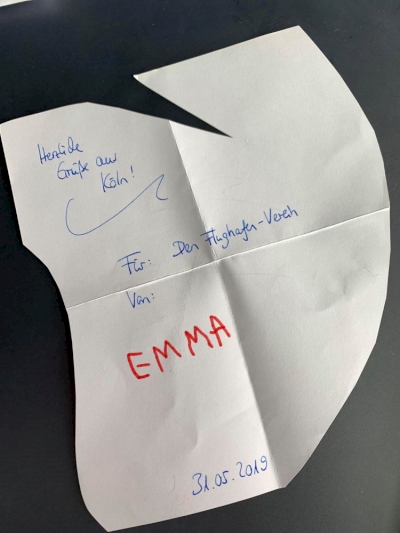 Herzliche
Grüße aus
Köln!
Für: Den Flughafen-Verein
Von:
EMMA
31.05.2019